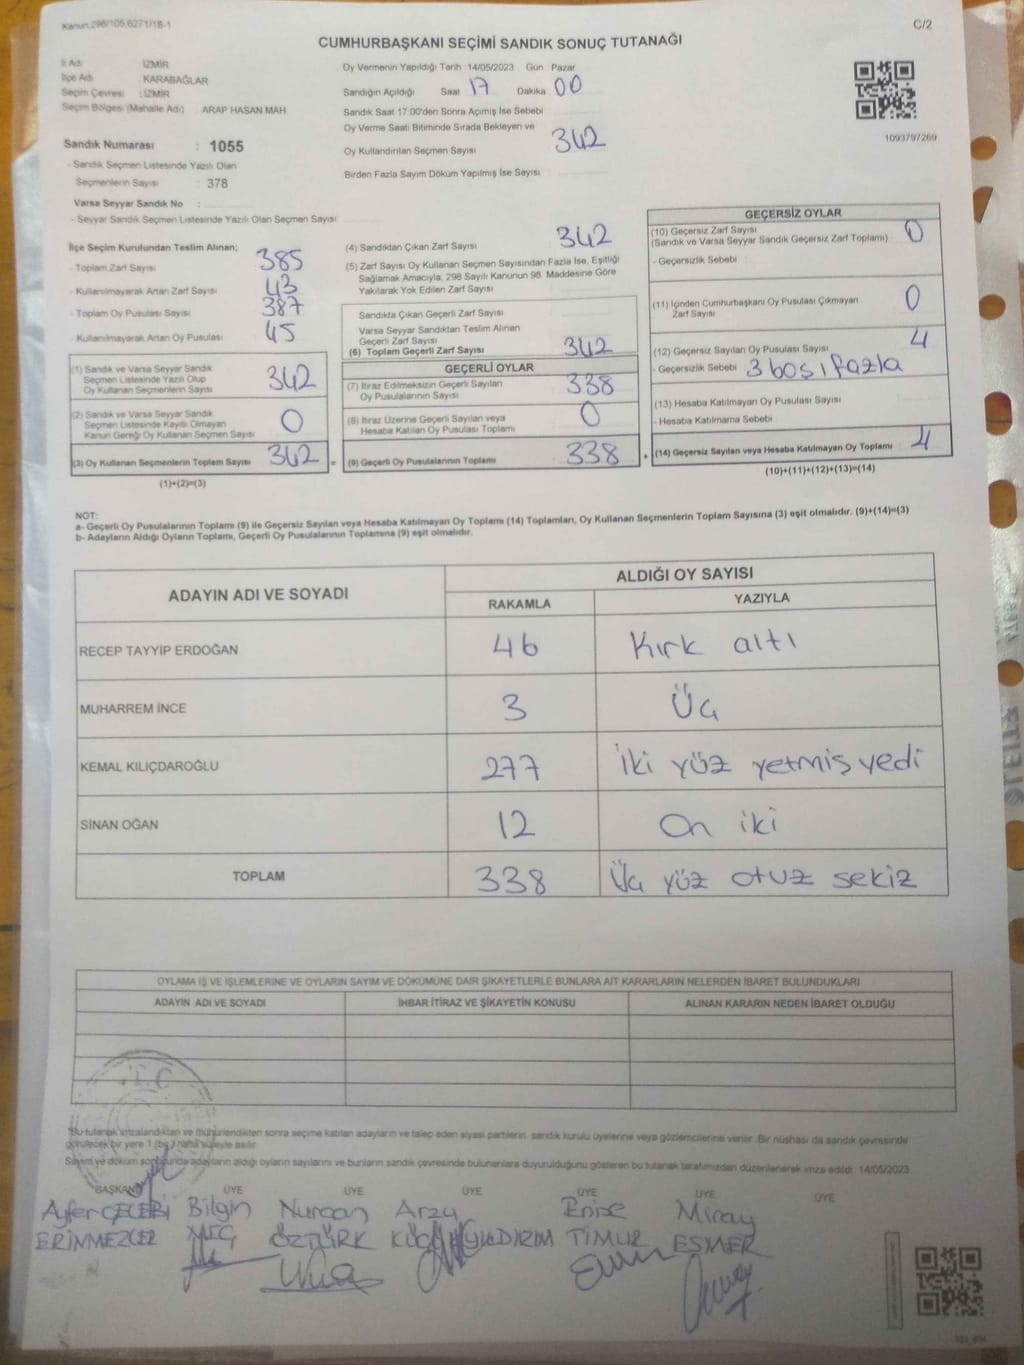 Kanun 298/105,6271/18-1
C/2
CUMHURBAŞKANI SEÇİMİ SANDIK SONUÇ TUTANAĞI
İl Adı : İZMİR
İlçe Adı : KARABAĞLAR
Seçim Çevresi : İZMİR
Seçim Bölgesi (Mahalle Adı) ARAP HASAN MAH
Sandık Numarası : 1055
- Sandık Seçmen Listesinde Yazılı Olan
Seçmenlerin Sayısı : 378
Varsa Seyyar Sandık No :
- Seyyar Sandık Seçmen Listesinde Yazılı Olan Seçmen Sayısı
Oy Vermenin Yapıldığı Tarih 14/05/2023 Gün Pazar
Sandığın Açıldığı Saat 17 Dakika 00
Sandık Saat 17.00'den Sonra Açımış İse Sebebi
Oy Verme Saati Bitiminde Sırada Bekleyen ve
Oy Kullandırılan Seçmen Sayısı 342
Birden Fazla Sayım Döküm Yapılmış İse Sayısı
1093797269
İlçe Seçim Kurulundan Teslim Alınan;
- Toplam Zarf Sayısı 385
- Kullanılmayarak Artan Zarf Sayısı 43
- Toplam Oy Pusulası Sayısı 387
- Kullanılmayarak Artan Oy Pusulası 45
(1) Sandık ve Varsa Seyyar Sandık
Seçmen Listesinde Yazılı Olup
Oy Kullanan Seçmenlerin Sayısı 342
(2) Sandık ve Varsa Seyyar Sandık
Seçmen Listesinde Kayıtlı Olmayan
Kanun Gereği Oy Kullanan Seçmen Sayısı 0
(3) Oy Kullanan Seçmenlerin Toplam Sayısı 342
(1)+(2)=(3)
(4) Sandıktan Çıkan Zarf Sayısı 342
(5) Zarf Sayısı Oy Kullanan Seçmen Sayısından Fazla İse, Eşitliği
Sağlamak Amacıyla, 298 Sayılı Kanunun 98. Maddesine Göre
Yakılarak Yok Edilen Zarf Sayısı
Sandıkta Çıkan Geçerli Zarf Sayısı
Varsa Seyyar Sandıktan Teslim Alınan
Geçerli Zarf Sayısı
(6) Toplam Geçerli Zarf Sayısı 342
GEÇERLİ OYLAR
(7) İtiraz Edilmeksizin Geçerli Sayılan
Oy Pusulalarının Sayısı 338
(8) İtiraz Üzerine Geçerli Sayılan veya
Hesaba Katılan Oy Pusulası Toplamı 0
= (9) Geçerli Oy Pusulalarının Toplamı 338
GEÇERSİZ OYLAR
(10) Geçersiz Zarf Sayısı 0
(Sandık ve Varsa Seyyar Sandık Geçersiz Zarf Toplamı)
- Geçersizlik Sebebi :
(11) İçinden Cumhurbaşkanı Oy Pusulası Çıkmayan 0
Zarf Sayısı
(12) Geçersiz Sayılan Oy Pusulası Sayısı 4
- Geçersizlik Sebebi 3 boş 1 fazla
(13) Hesaba Katılmayan Oy Pusulası Sayısı
- Hesaba Katılmama Sebebi
+ (14) Geçersiz Sayılan veya Hesaba Katılmayan Oy Toplamı 4
(10)+(11)+(12)+(13)=(14)
NOT:
a- Geçerli Oy Pusulalarının Toplamı (9) ile Geçersiz Sayılan veya Hesaba Katılmayan Oy Toplamı (14) Toplamları, Oy Kullanan Seçmenlerin Toplam Sayısına (3) eşit olmalıdır. (9)+(14)=(3)
b- Adayların Aldığı Oyların Toplamı, Geçerli Oy Pusulalarının Toplamına (9) eşit olmalıdır.
ADAYIN ADI VE SOYADI
ALDIĞI OY SAYISI
RAKAMLA YAZIYLA
RECEP TAYYİP ERDOĞAN 46 Kırk altı
MUHARREM İNCE 3 Üç
KEMAL KILIÇDAROĞLU 277 İki yüz yetmiş yedi
SİNAN OĞAN 12 On iki
TOPLAM 338 Üç yüz otuz sekiz
OYLAMA İŞ VE İŞLEMLERİNE VE OYLARIN SAYIM VE DÖKÜMÜNE DAİR ŞİKAYETLERLE BUNLARA AİT KARARLARIN NELERDEN İBARET BULUNDUKLARI
ADAYIN ADI VE SOYADI İHBAR İTİRAZ VE ŞİKAYETİN KONUSU ALINAN KARARIN NEDEN İBARET OLDUĞU
T.C
Bu tutanak imzalandıktan ve mühürlendikten sonra seçime katılan adayların ve talep eden siyasi partilerin sandık kurulu üyelerine veya gözlemcilerine verilir. Bir nüshası da sandık çevresinde
görülecek bir yere 1 (bir) hafta süreyle asılır.
Sayım ve döküm sonucunda adayların aldığı oyların sayılarını ve bunların sandık çevresinde bulunanlara duyurulduğunu gösteren bu tutanak tarafımızdan düzenlenerek imza edildi. 14/05/2023
BAŞKAN ÜYE ÜYE ÜYE ÜYE ÜYE ÜYE
Ayfer ÇELEBİ Bilgin Nurcan Arzu Enise Miray
ERİNMEZLER ÖZTÜRK YILDIRIM TİMUR ESMER